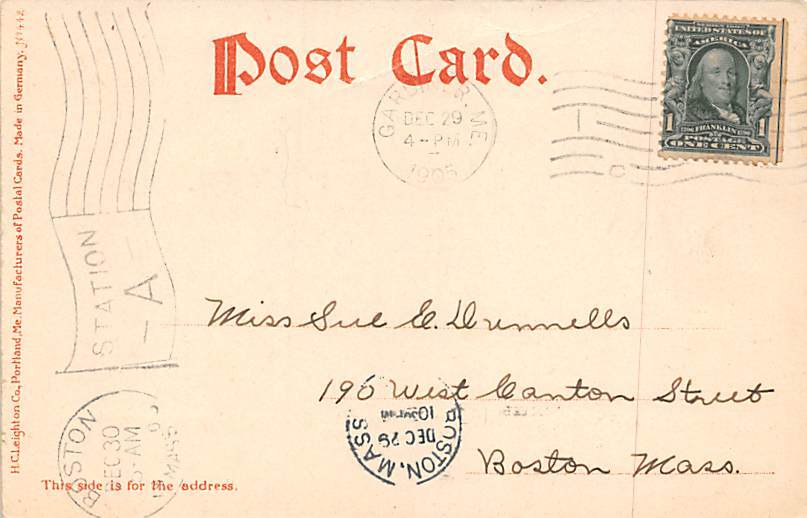 Post Card.
SERIES 1902
UNITED STATES OF
AMERICA
FRANKLIN
1 POSTAGE 1
ONE CENT
GARDINER, ME.
DEC 29
4-PM
1905
1
C
STATION
-A-
BOSTON
DEC 30
AM
MASS.
Miss Sue E. Dunnells
190 West Canton Street
Boston Mass.
BOSTON, MASS
DEC 29
10
This side is for the address.
H.C. Leighton Co., Portland, Me. Manufacturers of Postal Cards. Made in Germany.